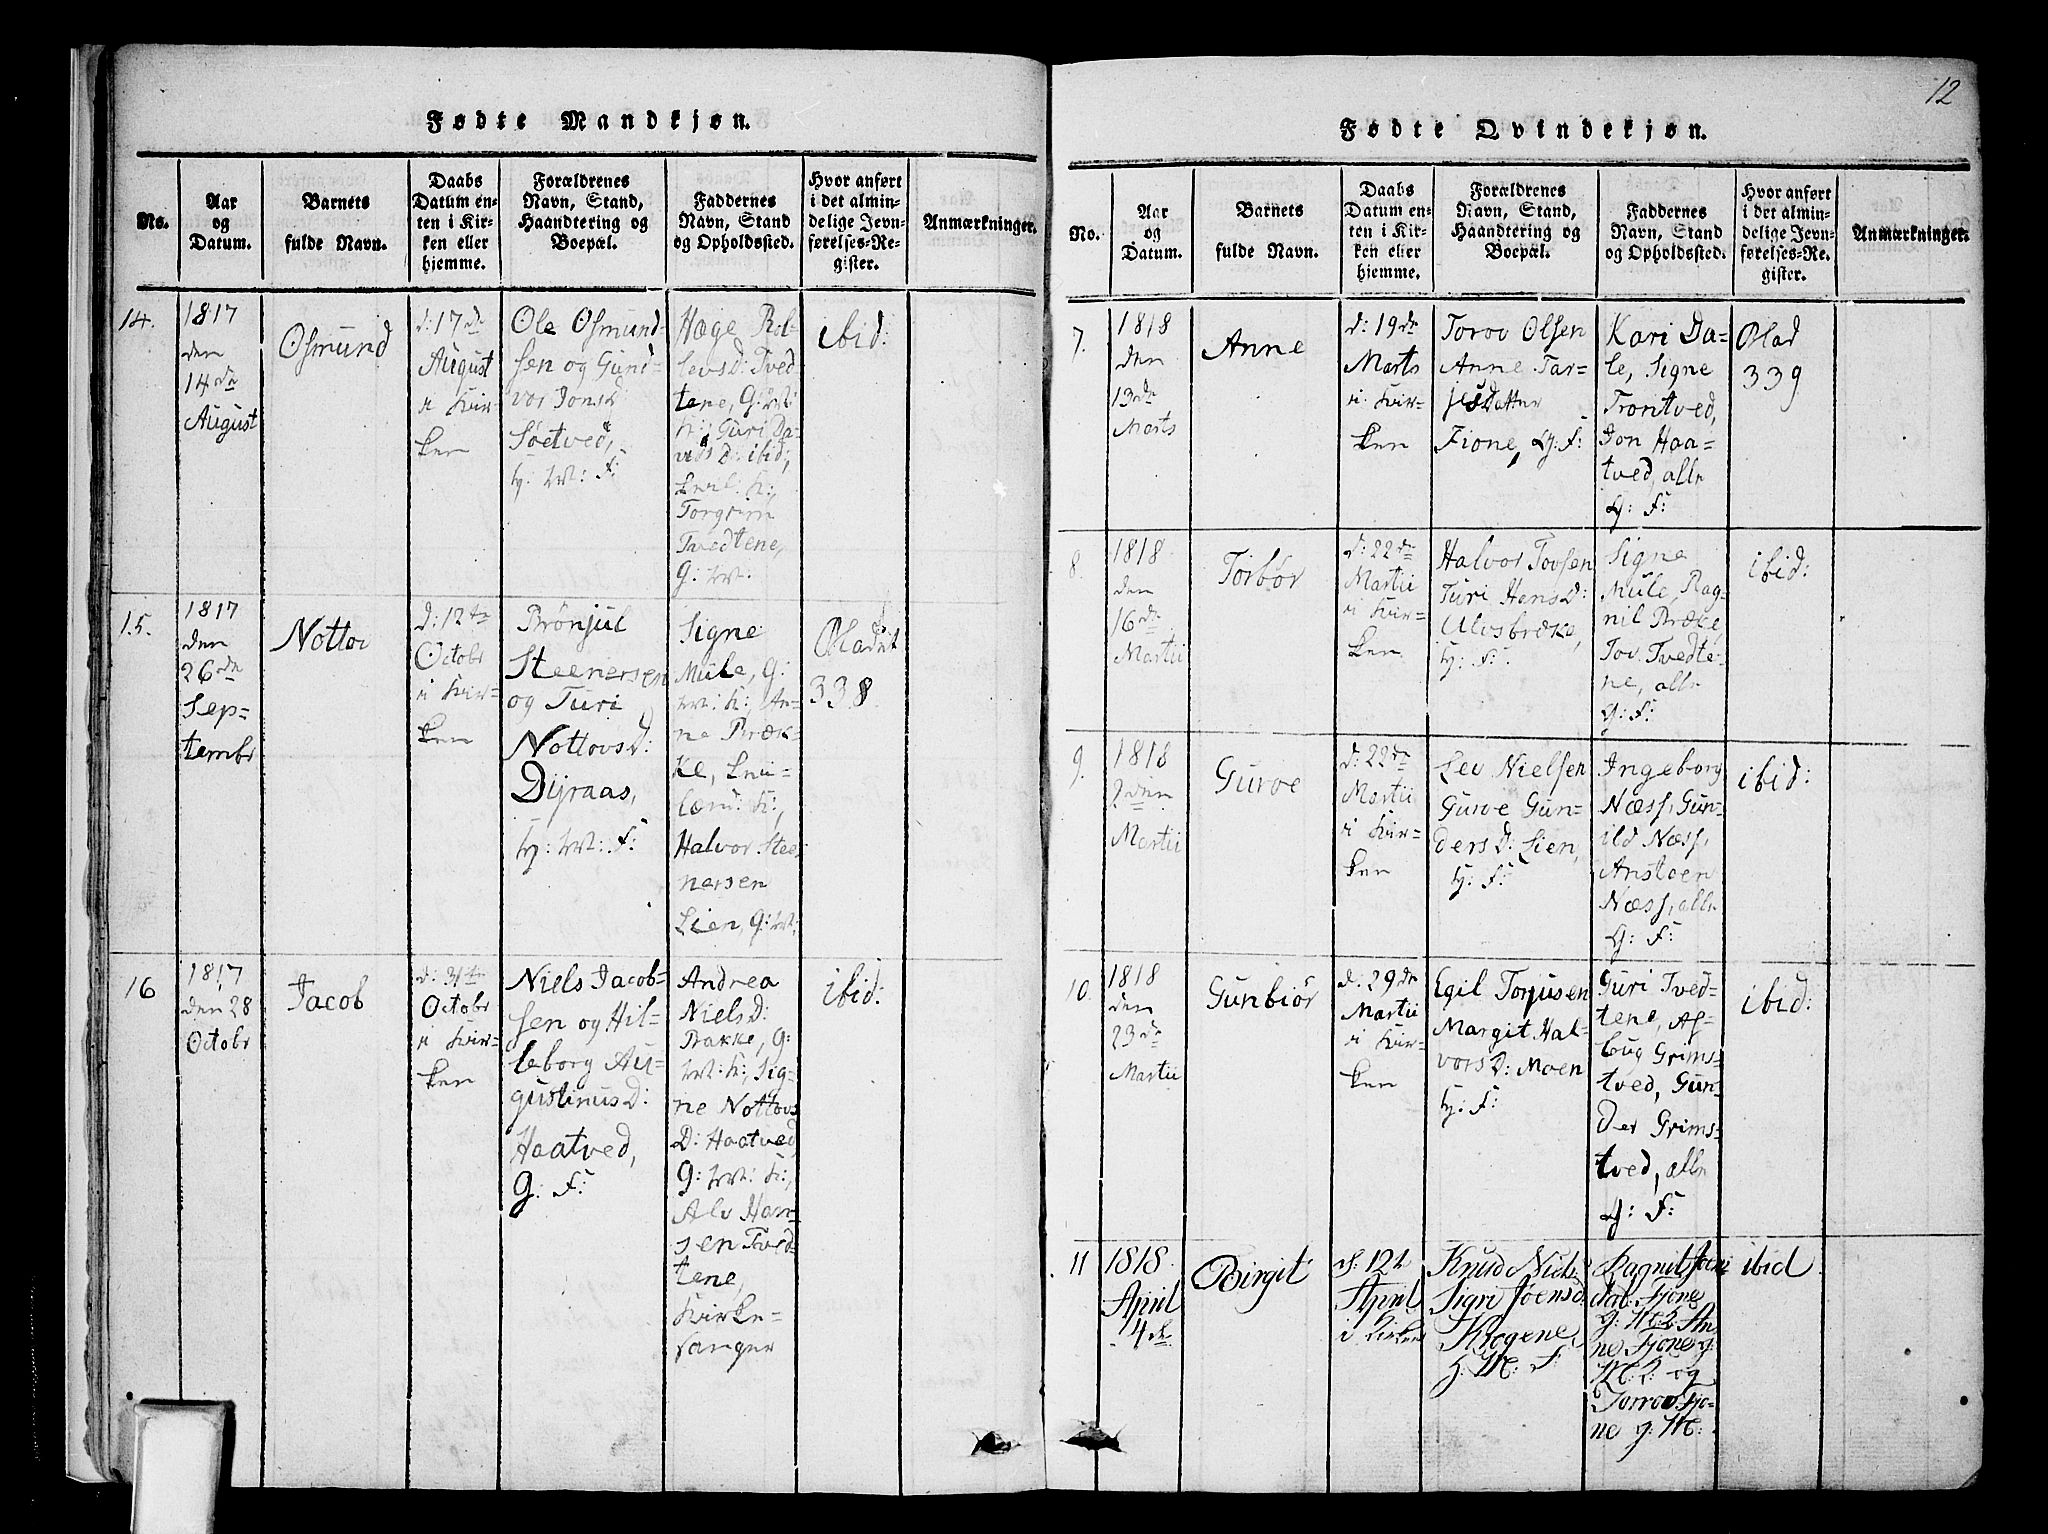 12
Fødte Mandkjøn.
No.
Aar
og
Datum.
Barnets
fulde Navn.
Daabs
Datum en-
ten i Kir-
ken eller
hjemme.
Forældrenes
Navn, Stand,
Haandtering og
Boepæl.
Faddernes
Navn, Stand
og Opholdssted.
Hvor anført
i det almin-
delige Jevn-
førelses-Re-
gister.
Anmærkninger.
14.
1817
den
14de
August
Osmund
d: 17de
August
i Kir-
ken
Ole Osmund-
sen og Gun-
vor JonsD
Søetved,
H: M: F:
Hæge Rol-
levsD: Tved
tene, G: M:
K: Guri Da-
vidsD: ibid,
K:,
Torgrim
Tvedtene,
G: M:
ibid:
15.
1817
den
26de
Sep-
tembr
Nottov
d: 12te
Octobr
i Kir-
ken
Brønjul
Steenersen
og Turi
NottovsD:
Dyraas,
H: M: F:
Signe
Mule, G:
M: K:, An-
ne Bræk-
ke,
K:,
Halvor Stee
nersen
Lien, G: M:
Bladet
338
16
1817
den 28
Octobr
Jacob
d: 31te
Octobr
i Kir-
ken
Niels Jacob-
sen og Hil-
leborg Au-
gustinusD:
Haatved,
G: F:
Andrea
NielsD:
Bakke, G:
M: K:, Sig-
ne Nottovs
D: Haatved,
G: M: K:,
Alv Han-
sen Tved-
tene,
Kirke-
sanger
ibid:
Fødte Qvindekjøn.
No.
Aar
og
Datum.
Barnets
fulde Navn.
Daabs
Datum en-
ten i Kir-
ken eller
hjemme.
Forældrenes
Navn, Stand,
Haandtering og
Boepæl.
Faddernes
Navn, Stand
og Opholdssted.
Hvor anført
i det almin-
delige Jevn-
førelses-Re-
gister.
Anmærkninger.
7.
1818
den
13de
Marts
Anne
d: 19de
Marts
i Kir-
ken
Torov Olsen
Anne Tar-
jesDatter
Fione, G: F:
Kari Da-
le, Signe
Trontved,
Jon Haa-
tved, alle
G: F:
Blad
339
8.
1818
den
16de
Martii
Torbør
d: 22de
Martii
i Kir-
ken
Halvor Tovsen
Turi HansD:
Ulvsbrække,
H: F:
Signe
Mule, Rag-
nil Bræke,
Tov Tvedte-
ne, alle
G: F:
ibid:
9.
1818
2den
Martii
Guroe
d: 22de
Martii
i Kir-
ken
Lev Nielsen
Guroe Gun-
dersD: Lien,
H: F:
Ingeborg
Næss, Gun-
ild Næss,
Anstoen
Næss, alle
G: F:
ibid:
10.
1818
den
23de
Martii
Gunbiør
d: 29de
Martii
i Kir-
ken
Egil Torjusen
Margit Hal-
vorsD: Moen
H: F:
Guri Tved-
tene, As-
laug Grims-
tved, Gun-
der Grims-
tved, alle
G: F:
ibid:
11
1818
April
4de
Birgit
d. 12t
April
i Kirken
Knud Niels
Sigri JoensD
Krogene,
H: M: F:
Ragnil Joens
dat. Fjone
g: M: K: An-
ne Fjone g:
M: K: og
Torrov Fjo-
ne g: M:
ibid